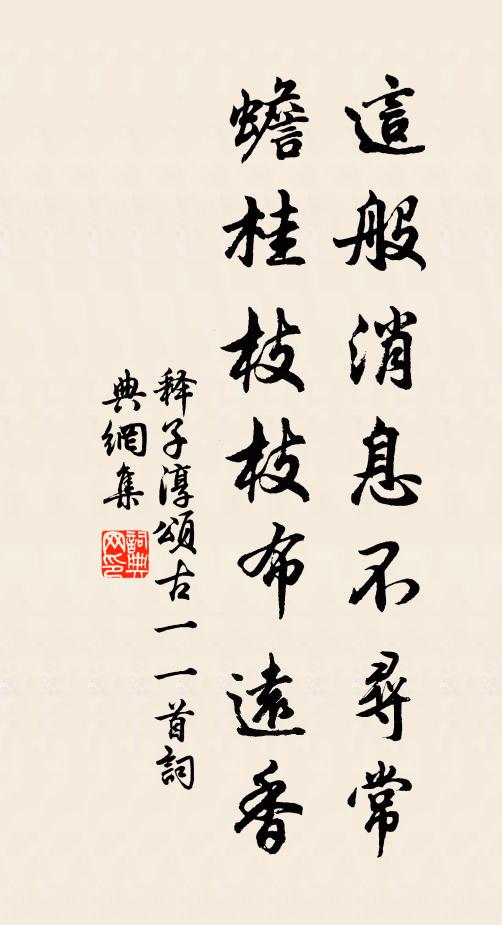 這般消息不尋常
蟾桂枝枝布遠香
释子淳頌古一一首詞
典網集
詞典
网印